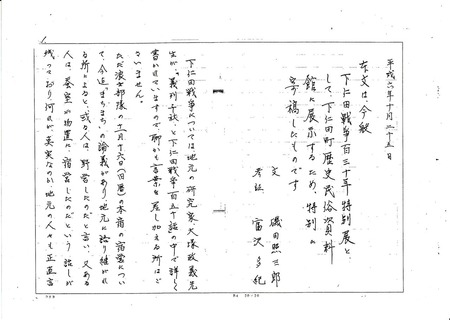 平成六年十月二十五日
本文は、今般
下仁田戦争百三十年特別展と
して、下仁田町歴史民俗資料
館に展示するため、特別に
寄稿したものです
文 磯田照三郎
考証 富沢多紀
下仁田戦争については、地元の研究家大塚政義先
生が、「義烈千秋」と下仁田戦争百五十話の中で詳しく
書かれていますので、聊かも言葉を差し加える所はご
ざいません。
ただ浪士部隊の十一月十六日(旧暦)の本宿の宿営につい
て、今迄まちまちの論義があり、地元に語り継がれ
る所によると、或る人は、野営したのだと言い、又ある
人は、安堂の地区に宿営したのだという話しが
残っており何れが真実なのか、地元の人々も正直言